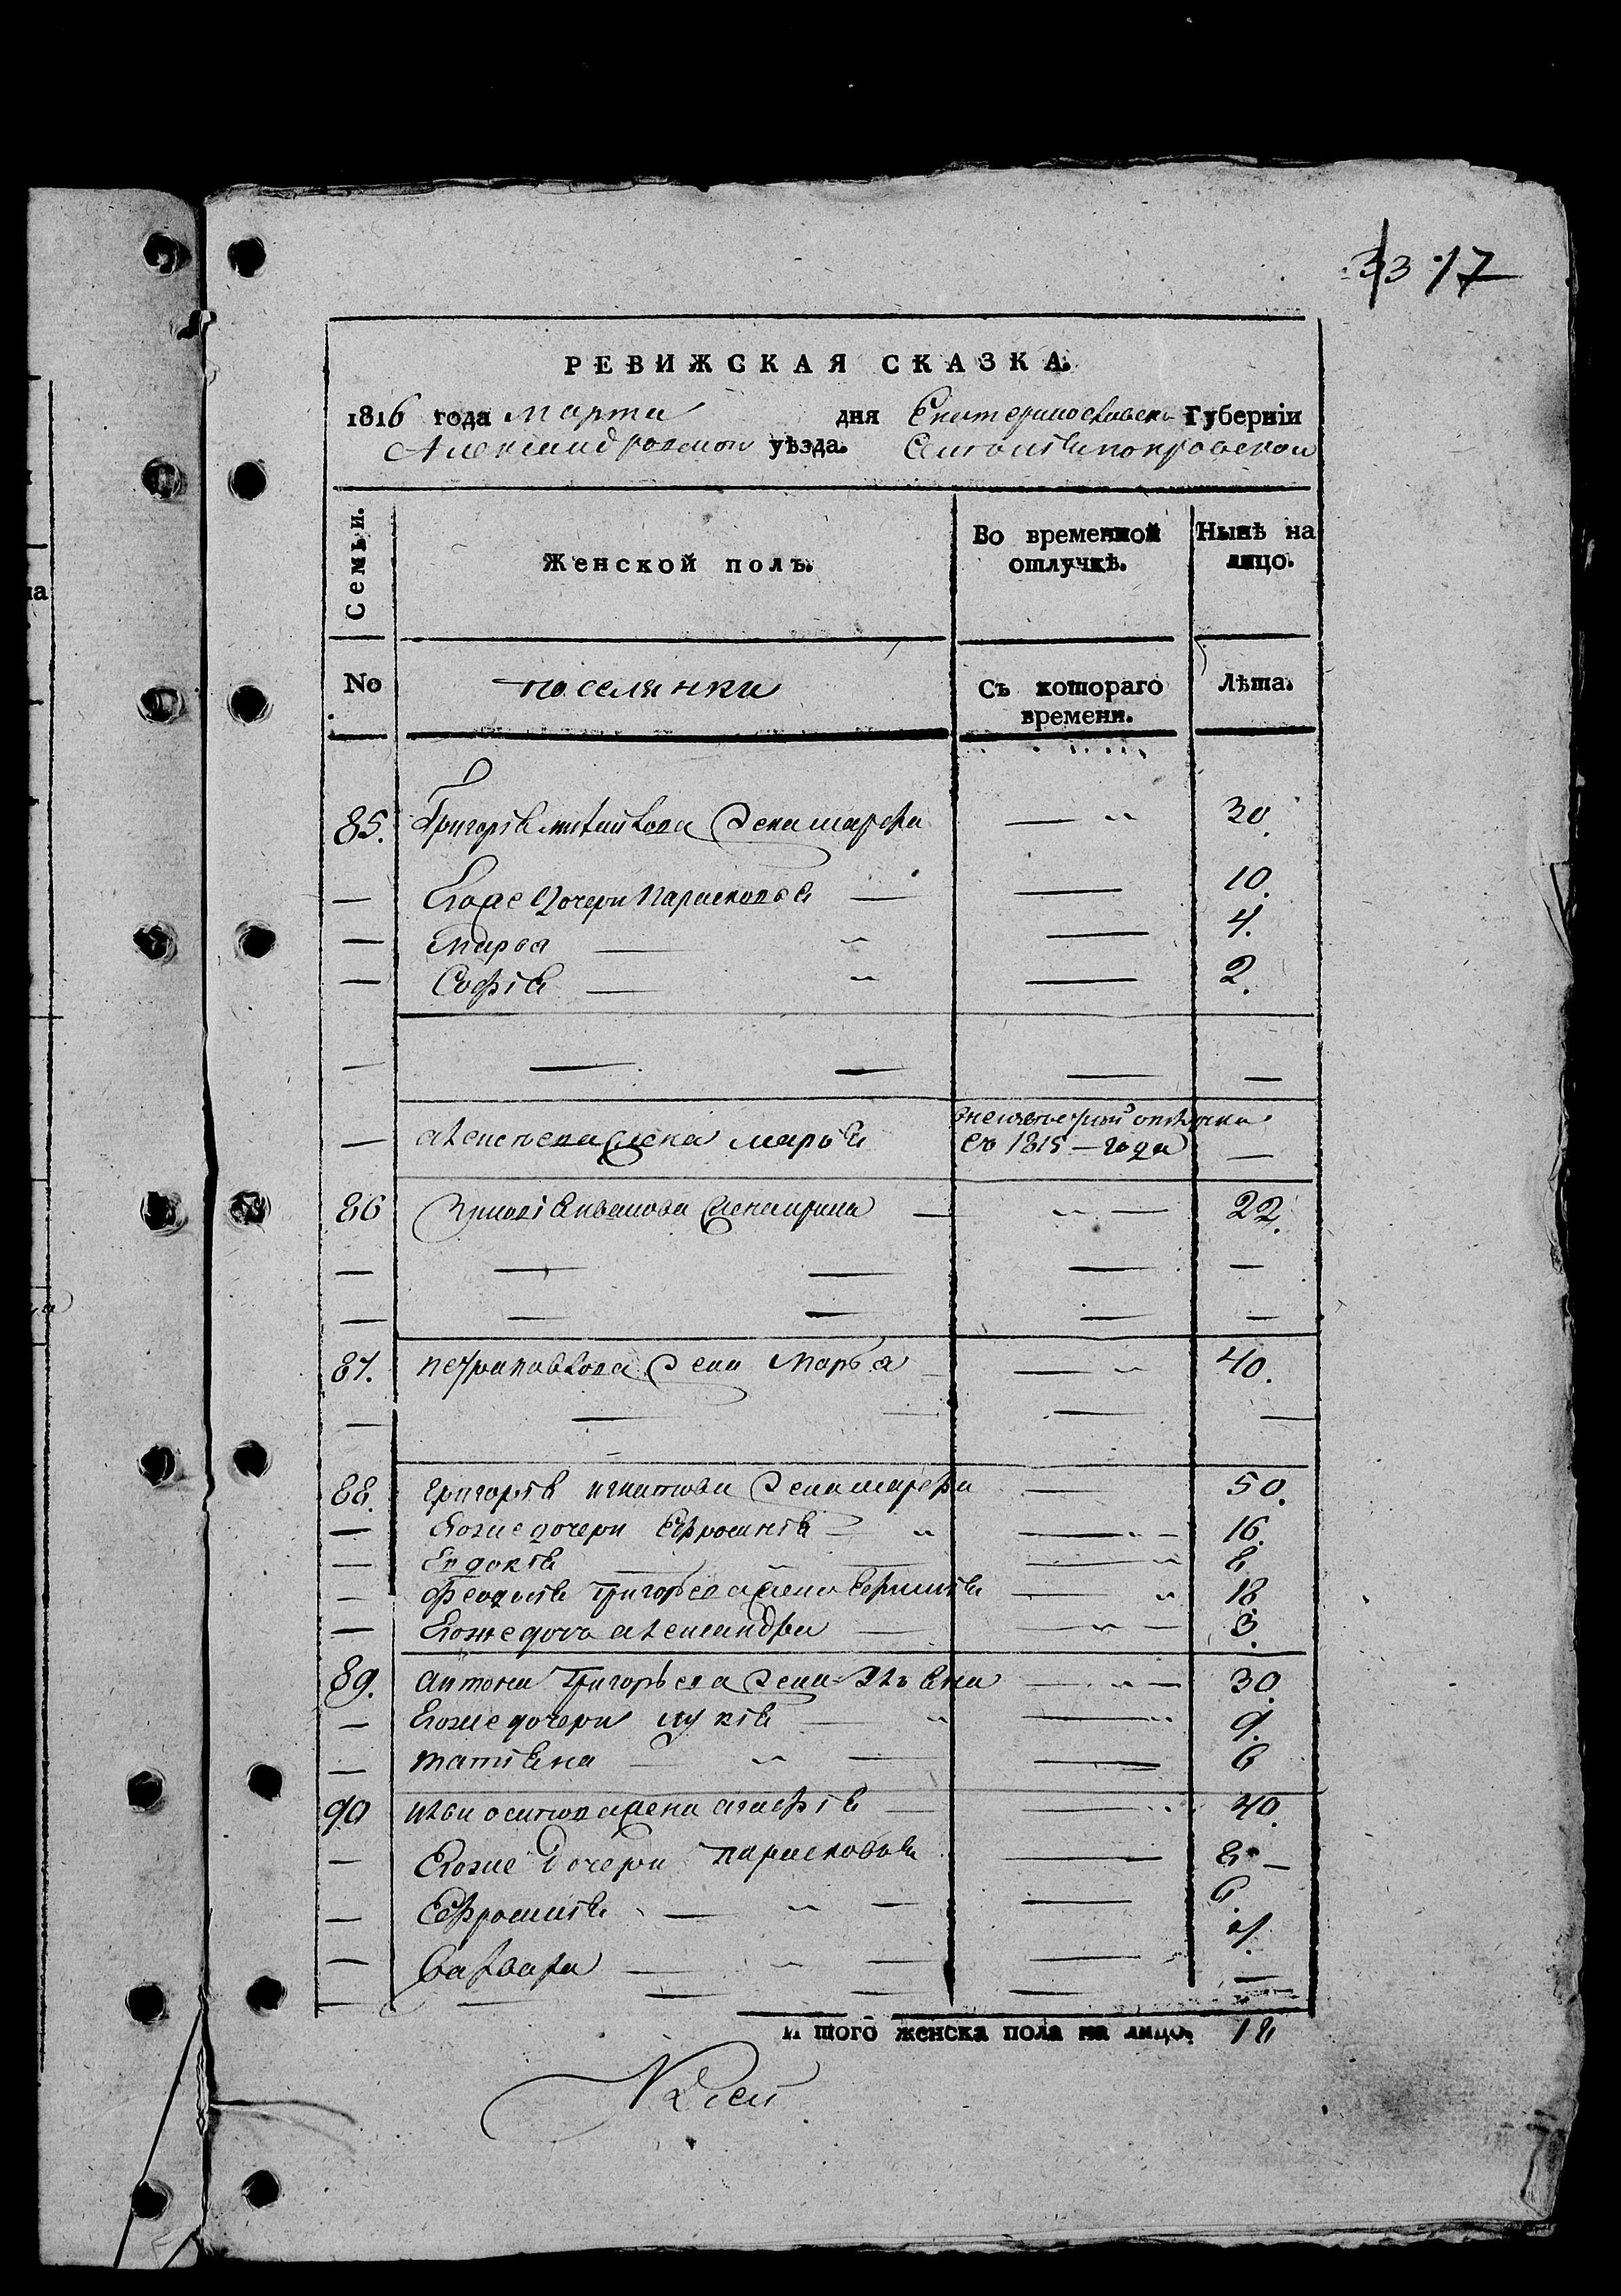 33 17
РЕВИЖСКАЯ СКАЗКА.
1816 года Марта дня Екатеринославской Губерніи
Александровской уѣзда.
Семьи.
Женской полъ.
Во временной отлучкѣ.
Нынѣ на лицо.
No
поселянки
Съ котораго времени.
Лѣта.
85. Григорія жена марфа 30.
— Егоже дочери Парасковья — 10.
— Марья — 4.
— Софія — 2.
— Алексѣева жена марья
съ 1815 — года —
86 Иванова жена ирина — 22.
87. петра жена Марья 40.
88. григорія игнатова жена марфа 50.
— Егоже дочери Ефросинія 16.
— Евдокія 8
— Феодосія григорьева жена Ефросинія 18
— Егоже дочь александра — 3.
89. антона григорьева жена 30.
— Егоже дочери лукія 9.
— татіяна 6
90 осипова жена агафія 40.
— Егоже дочери парасковья 8 —
— Ефросинія — 6.
— Варвара — 4.
И того женска пола на лицо. 18